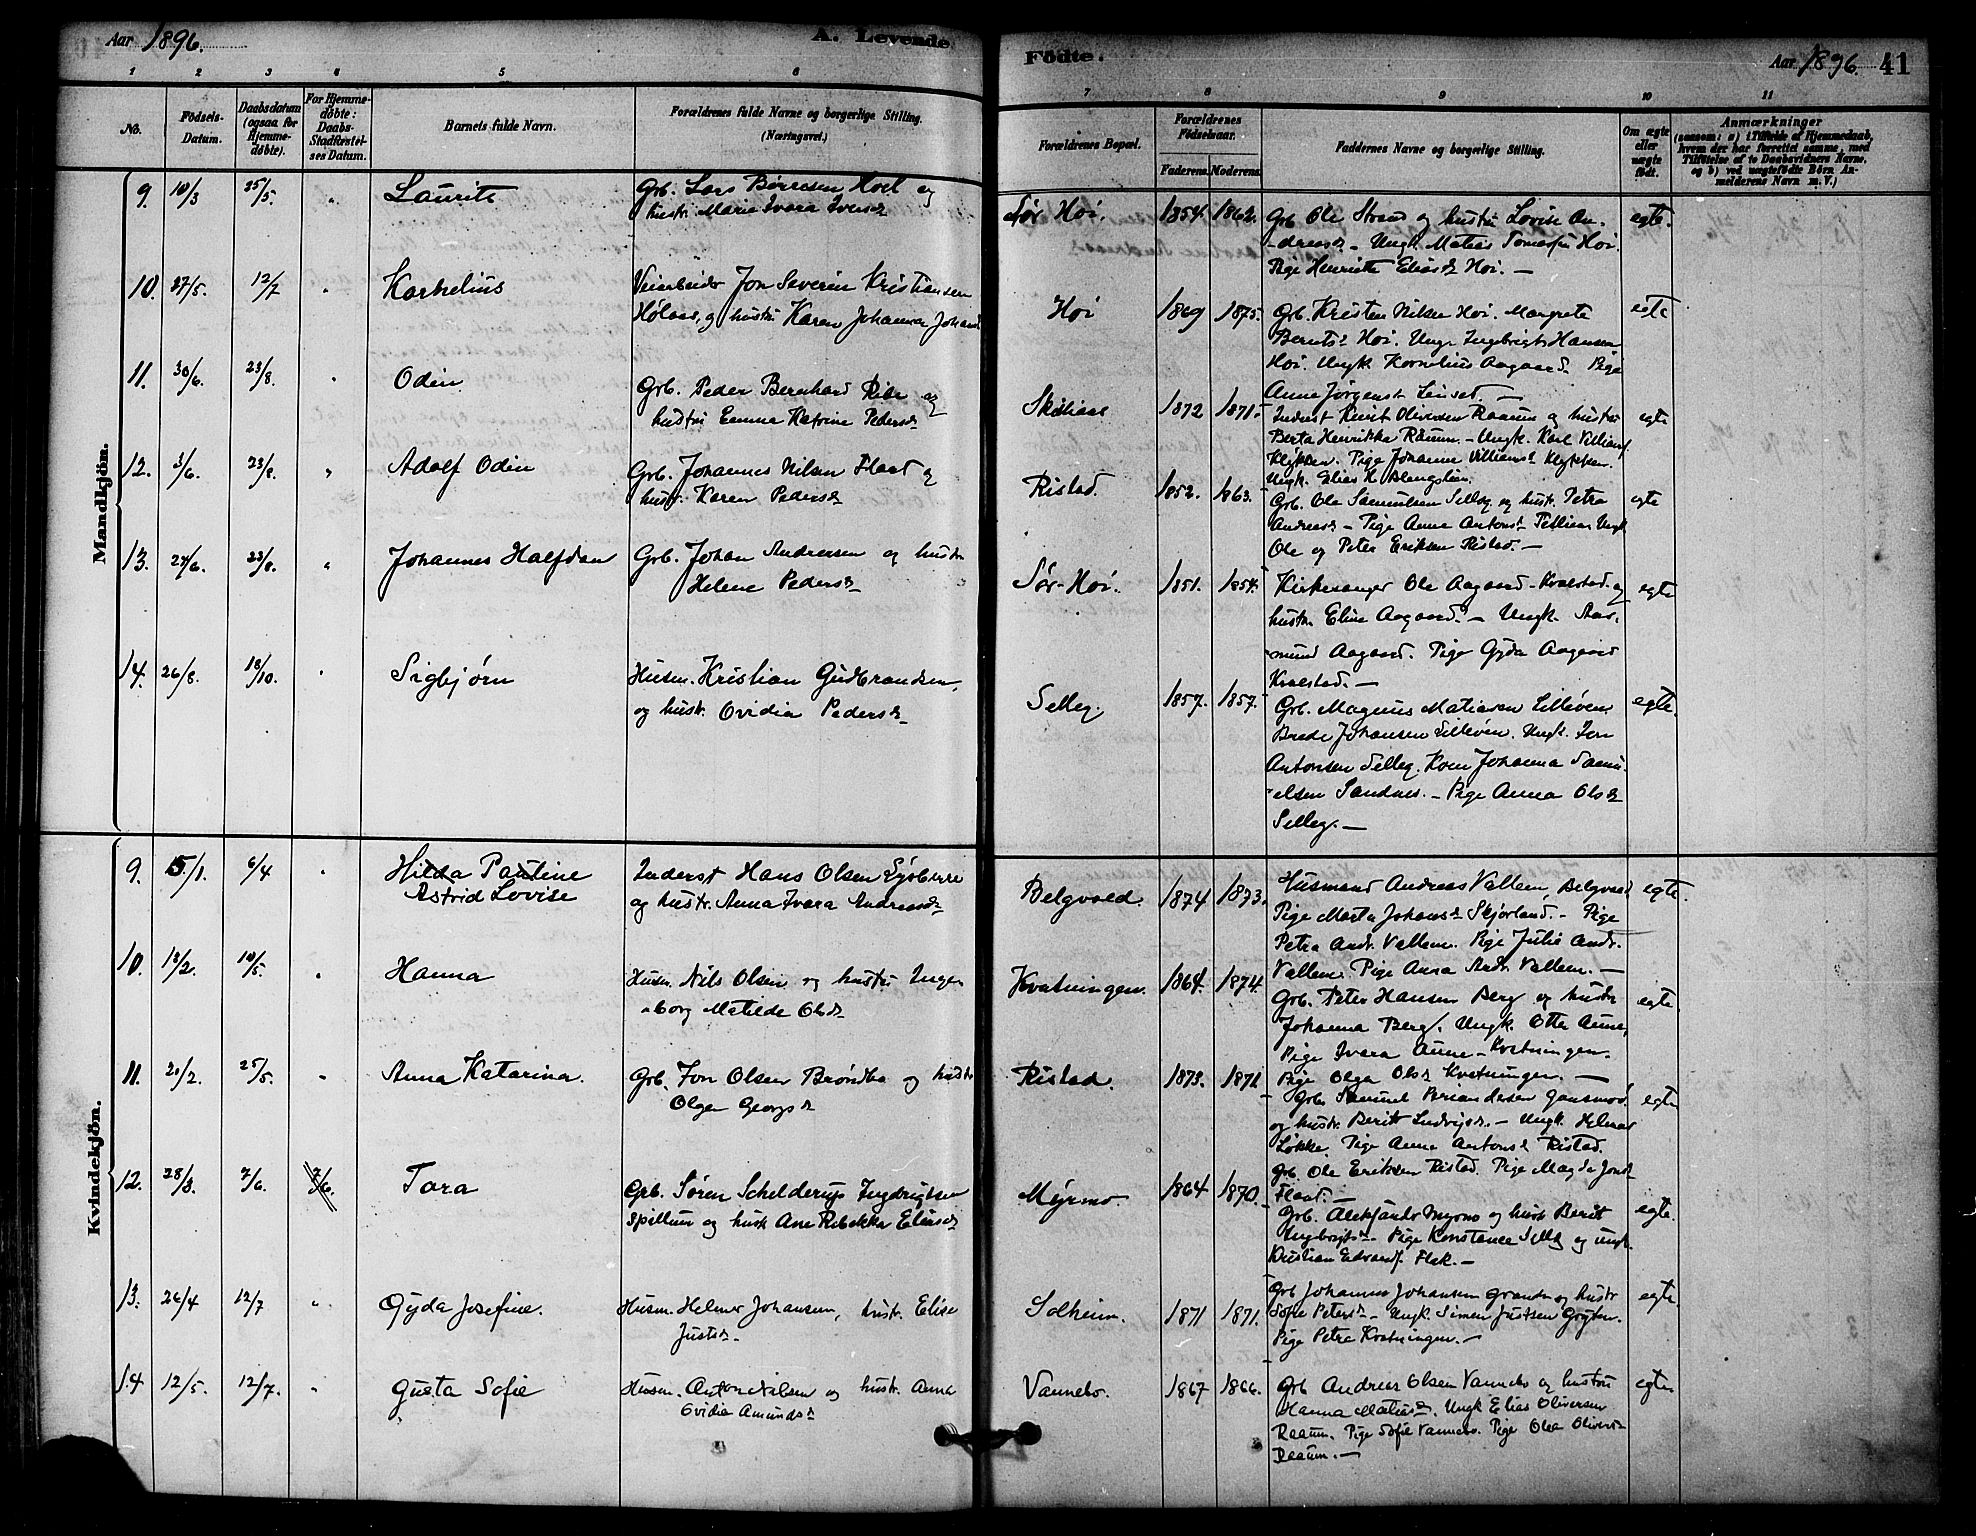 Aar 1896.
A. Levende
Fødte.
Aar 1896. 41
1 2 3 4 5 6 7 8 9 10 11
No.
Fødsels-Datum.
Daabsdatum (ogsaa for Hjemmedøbte).
For Hjemmedøbte: Daabs-Stadfæstelses Datum.
Barnets fulde Navn.
Forældrenes fulde Navne og borgerlige Stilling.
(Næringsvei.)
Forældrenes Bopæl.
Forældrenes Fødselsaar.
Faderens. Moderens.
Faddernes Navne og borgerlige Stilling.
Om ægte eller uægte født.
Anmærkninger
(saasom: a) i Tilfælde af Hjemmedaab, hvem der har forrettet samme, med Tilføielse af to Daabsvidners Navne, og b) ved uægtefødte Børn Anmelderens Navn m. V.)
Mandkjön.
9. 10/3 25/5. " Laurits Grb. Lars Børresen Hoel og
hustr. Marie Ivara Iversd
Sør Høi. 1854. 1862. Grb. Ole Strand og hustru Lovise An- egte.
dreasd. – Ungk. Matias Tomasen Høi.
Pige Henriette Eliasd Høi. —
10. 27/5. 12/7 " Kornelius Veiarbeider Jon Severin Kristiansen
og hustru Karen Johanna Johansd
Høi 1869 1875. Grb. Kristen Nilsen Høi. Margrete egte
Berntsd Høi. Ungk. Ingebrigt Hansen
Høi. Ungk. Kornelius Aagaard. Pige
Anna Jørgensd
11. 30/6. 23/8. " Odin Grb. Peder Bernhard og
hustru Emma Katrine Pedersd
1872 1871. Inderst Oliversen Raaum og hustru egte
Berta Henrikke Raaum. – Ungk. Karl Villiams.
Klykken. Pige Johanna Villiamsd Klykken.
Ungk. Elias
12. 3/6. 23/8. " Adolf Odin Grb. Johannes Nilsen Flaat og
hustr. Karen Pedersd
Ristad. 1852. 1863. Grb. Ole Samuelsen Selleg og hustr. Petra egte
Andreasd – Pige Anna Antonsd Ungk
Ole og Peter Eriksen Ristad. —
13. 24/6. 23/8. " Johannes Halfdan Grb. Johan Andersen og hustr.
Helene Pedersd
Sør-Høi. 1851. 1854. Kirkesanger Ole Aagaard Kvalstad og egte
hustr. Eline Aagaard. – Ungk. Aas-
mund Aagaard. Pige Gyda Aagaard
Kvalstad. —
14. 26/8. 18/10. " Sigbjørn Husm. Kristian Gudbrandsen,
og hustr. Ovidia Pedersd
Selleg. 1857. 1857. Grb. Magnus Matiasen egte.
Johansen Ungk. Jon
Antonsen Selleg. Kone Johanna Samu-
elsen Sandnes. – Pige Anna Olsd
Selleg. —
Kvindekjön.
9. 5/1. 6/4 " Hilda Pauline
Astrid Lovise
Inderst Hans Olsen
og hustr. Anna Ivara Andreasd
Belgvold. 1874 1873. Husmand Andreas Vallem, Belgvold egte.
Pige Marta Johansd Skjørland. – Pige
Petra Andr. Vallem. Pige Julie Andr.
Vallem. Pige Anna Andr. Vallem. —
10. 13/2. 10/5. " Hanna Husm. Nils Olsen og hustru Inge-
borg Matilde Olsd
Kvatningen. 1864. 1874. Grb. Peter Hansen Berg og hustr. egte
Johanna Berg. Ungk. Otto Aune,
Pige Ivara Aune – Kvatningen.
Pige Olga Olsd Kvatningen. —
11. 21/2. 25/5. " Anna Katarina. Grb. Jon Olsen og hustr.
Olga Georgsd
Ristad. 1873. 1871 Grb. Samuel egte
og hustr. Beritt Ludvigsd. – Ungk. Helmer
Løkke. Pige Anna Antonsd Ristad.
Grb. Ole Eriksen Ristad. Pige Magda Jonsd
Flaat. —
12. 28/3. 7/6. 7/6. Tora Grb. Søren Schelderup Ingebrigtsen
Spillum og hustr. Ane Rebekka Eliasd
Myrmo. 1864 1870. Grb. Aleksander Myrmo og hustr. Beritt egte.
Ingebrigtsd – Pige Konstance Selleg og ungk.
Kristian Edvards. Flak. —
13. 26/4 12/7 " Gyda Josefine. Husm. Helmer Johansen, hustr. Elise
Justsd.
Solheim. 1871 1871. Grb Johannes Johansen og hustr. egte
Sofie Petersd – Ungk. Simen Justsen
Pige Petra Kvatningen. —
14 12/5. 12/7. " Gusta Sofie Husm. Anton Nilsen og hustr. Anna
Ovidia Amundsd
Vannebo. 1867 1866. Grb Andreas Olsen Vannebo og hustru egte
Hanna Matiasd. Ungk Elias Oliversen
Raaum. Pige Sofie Vannebo. Pige Olea Oliversd
Raaum. —